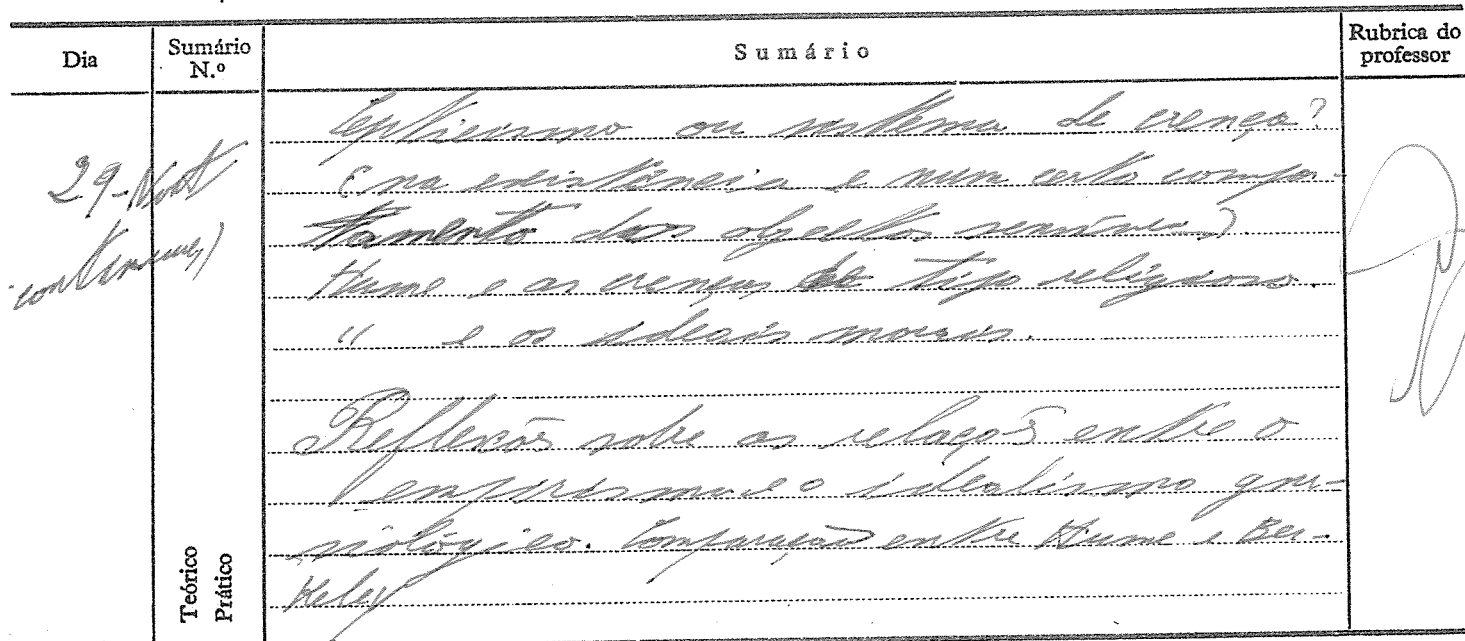 Dia
Sumário N.º
Sumário
Rubrica do professor
29-Nov
(continuação)
Cepticismo ou sistema de crença?
(na existência e num certo compor-
tamento dos objectos sensíveis).
Hume e as crenças de tipo religioso.
" e os ideais morais.
Reflexões sobre as relações entre o
empirismo e o idealismo gno-
siológico. Comparação entre Hume e Ber-
keley
Teórico
Prático